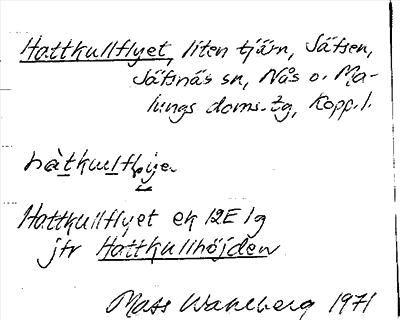 Hattkullflyet, liten tjärn, Säfsen,
Säfsnäs sn, Nås o. Ma-
lungs doms. tg, Kopp. l.
Hattkullflyet ek 12E 1g
jfr Hattkullhöjden
Mats Wahlberg 1971